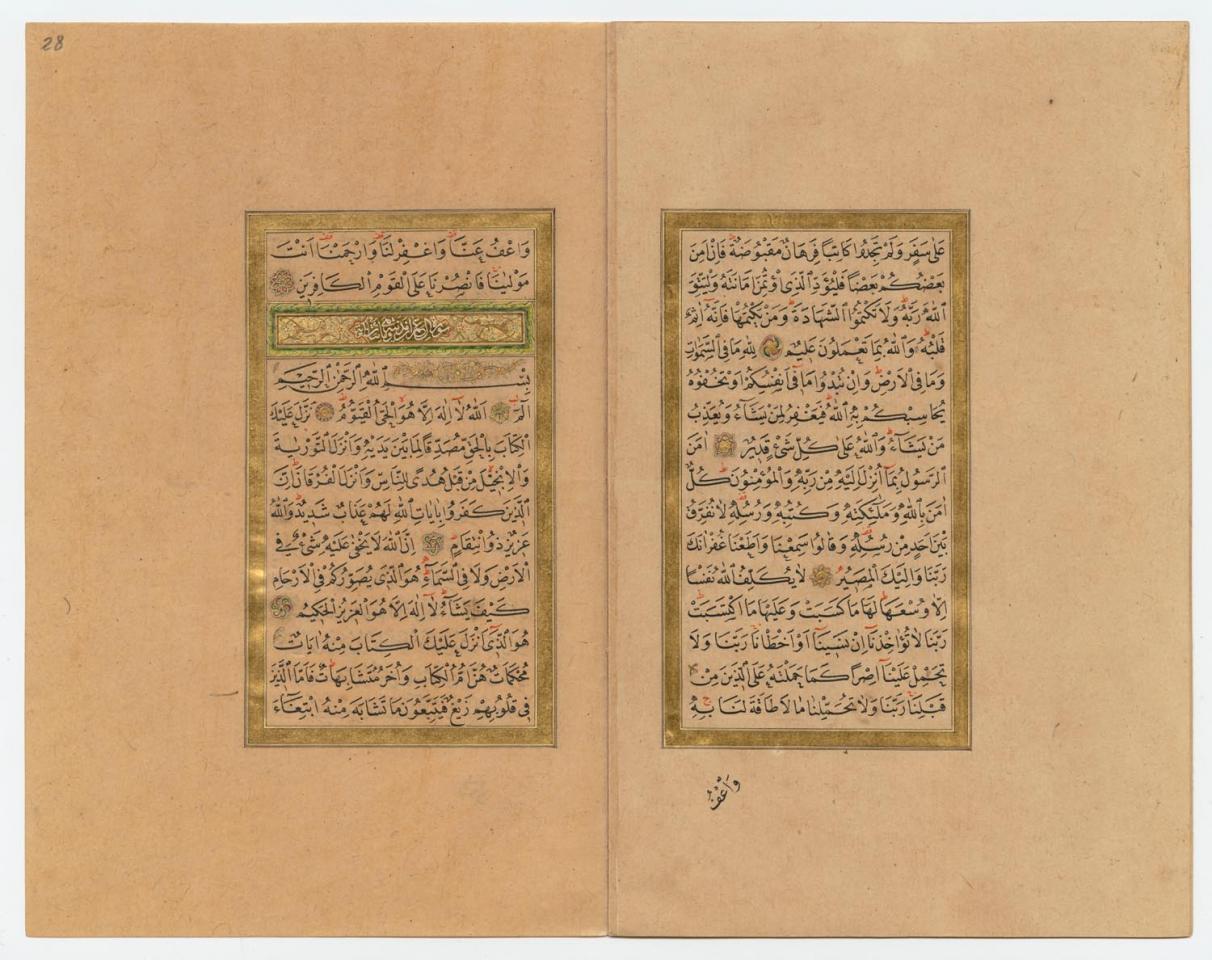 عَلٰى سَفَرٍ وَلَمْ تَجِدُوا كَاتِبًا فَرِهَانٌ مَقْبُوضَةٌ فَاِنْ اَمِنَ
بَعْضُكُمْ بَعْضًا فَلْيُؤَدِّ الَّذِى اؤْتُمِنَ اَمَانَتَهُ وَلْيَتَّقِ
اللّٰهَ رَبَّهُ وَلَا تَكْتُمُوا الشَّهَادَةَ وَمَنْ يَكْتُمْهَا فَاِنَّهُ اٰثِمٌ
قَلْبُهُ وَاللّٰهُ بِمَا تَعْمَلُونَ عَلِيمٌ لِلّٰهِ مَا فِى السَّمٰوَاتِ
وَمَا فِى الْاَرْضِ وَاِنْ تُبْدُوا مَا فِى اَنْفُسِكُمْ اَوْ تُخْفُوهُ
يُحَاسِبْكُمْ بِهِ اللّٰهُ فَيَغْفِرُ لِمَنْ يَشَاءُ وَيُعَذِّبُ
مَنْ يَشَاءُ وَاللّٰهُ عَلٰى كُلِّ شَىْءٍ قَدِيرٌ اٰمَنَ
الرَّسُولُ بِمَا اُنْزِلَ اِلَيْهِ مِنْ رَبِّهِ وَالْمُؤْمِنُونَ كُلٌّ
اٰمَنَ بِاللّٰهِ وَمَلٰئِكَتِهِ وَكُتُبِهِ وَرُسُلِهِ لَا نُفَرِّقُ
بَيْنَ اَحَدٍ مِنْ رُسُلِهِ وَقَالُوا سَمِعْنَا وَاَطَعْنَا غُفْرَانَكَ
رَبَّنَا وَاِلَيْكَ الْمَصِيرُ لَا يُكَلِّفُ اللّٰهُ نَفْسًا
اِلَّا وُسْعَهَا لَهَا مَا كَسَبَتْ وَعَلَيْهَا مَا اكْتَسَبَتْ
رَبَّنَا لَا تُؤَاخِذْنَا اِنْ نَسِينَا اَوْ اَخْطَأْنَا رَبَّنَا وَلَا
تَحْمِلْ عَلَيْنَا اِصْرًا كَمَا حَمَلْتَهُ عَلَى الَّذِينَ مِنْ
قَبْلِنَا رَبَّنَا وَلَا تُحَمِّلْنَا مَا لَا طَاقَةَ لَنَا بِهِ
وَاعْفُ
28
وَاعْفُ عَنَّا وَاغْفِرْ لَنَا وَارْحَمْنَا اَنْتَ
مَوْلٰينَا فَانْصُرْنَا عَلَى الْقَوْمِ الْكَافِرِينَ
بِسْمِ اللّٰهِ الرَّحْمٰنِ الرَّحِيمِ
الٓمٓ اَللّٰهُ لَا اِلٰهَ اِلَّا هُوَ الْحَىُّ الْقَيُّومُ نَزَّلَ عَلَيْكَ
الْكِتَابَ بِالْحَقِّ مُصَدِّقًا لِمَا بَيْنَ يَدَيْهِ وَاَنْزَلَ التَّوْرٰيةَ
وَالْاِنْجِيلَ مِنْ قَبْلُ هُدًى لِلنَّاسِ وَاَنْزَلَ الْفُرْقَانَ اِنَّ
الَّذِينَ كَفَرُوا بِاٰيَاتِ اللّٰهِ لَهُمْ عَذَابٌ شَدِيدٌ وَاللّٰهُ
عَزِيزٌ ذُو انْتِقَامٍ اِنَّ اللّٰهَ لَا يَخْفٰى عَلَيْهِ شَىْءٌ فِى
الْاَرْضِ وَلَا فِى السَّمَاءِ هُوَ الَّذِى يُصَوِّرُكُمْ فِى الْاَرْحَامِ
كَيْفَ يَشَاءُ لَا اِلٰهَ اِلَّا هُوَ الْعَزِيزُ الْحَكِيمُ
هُوَ الَّذِى اَنْزَلَ عَلَيْكَ الْكِتَابَ مِنْهُ اٰيَاتٌ
مُحْكَمَاتٌ هُنَّ اُمُّ الْكِتَابِ وَاُخَرُ مُتَشَابِهَاتٌ فَاَمَّا الَّذِينَ
فِى قُلُوبِهِمْ زَيْغٌ فَيَتَّبِعُونَ مَا تَشَابَهَ مِنْهُ ابْتِغَاءَ